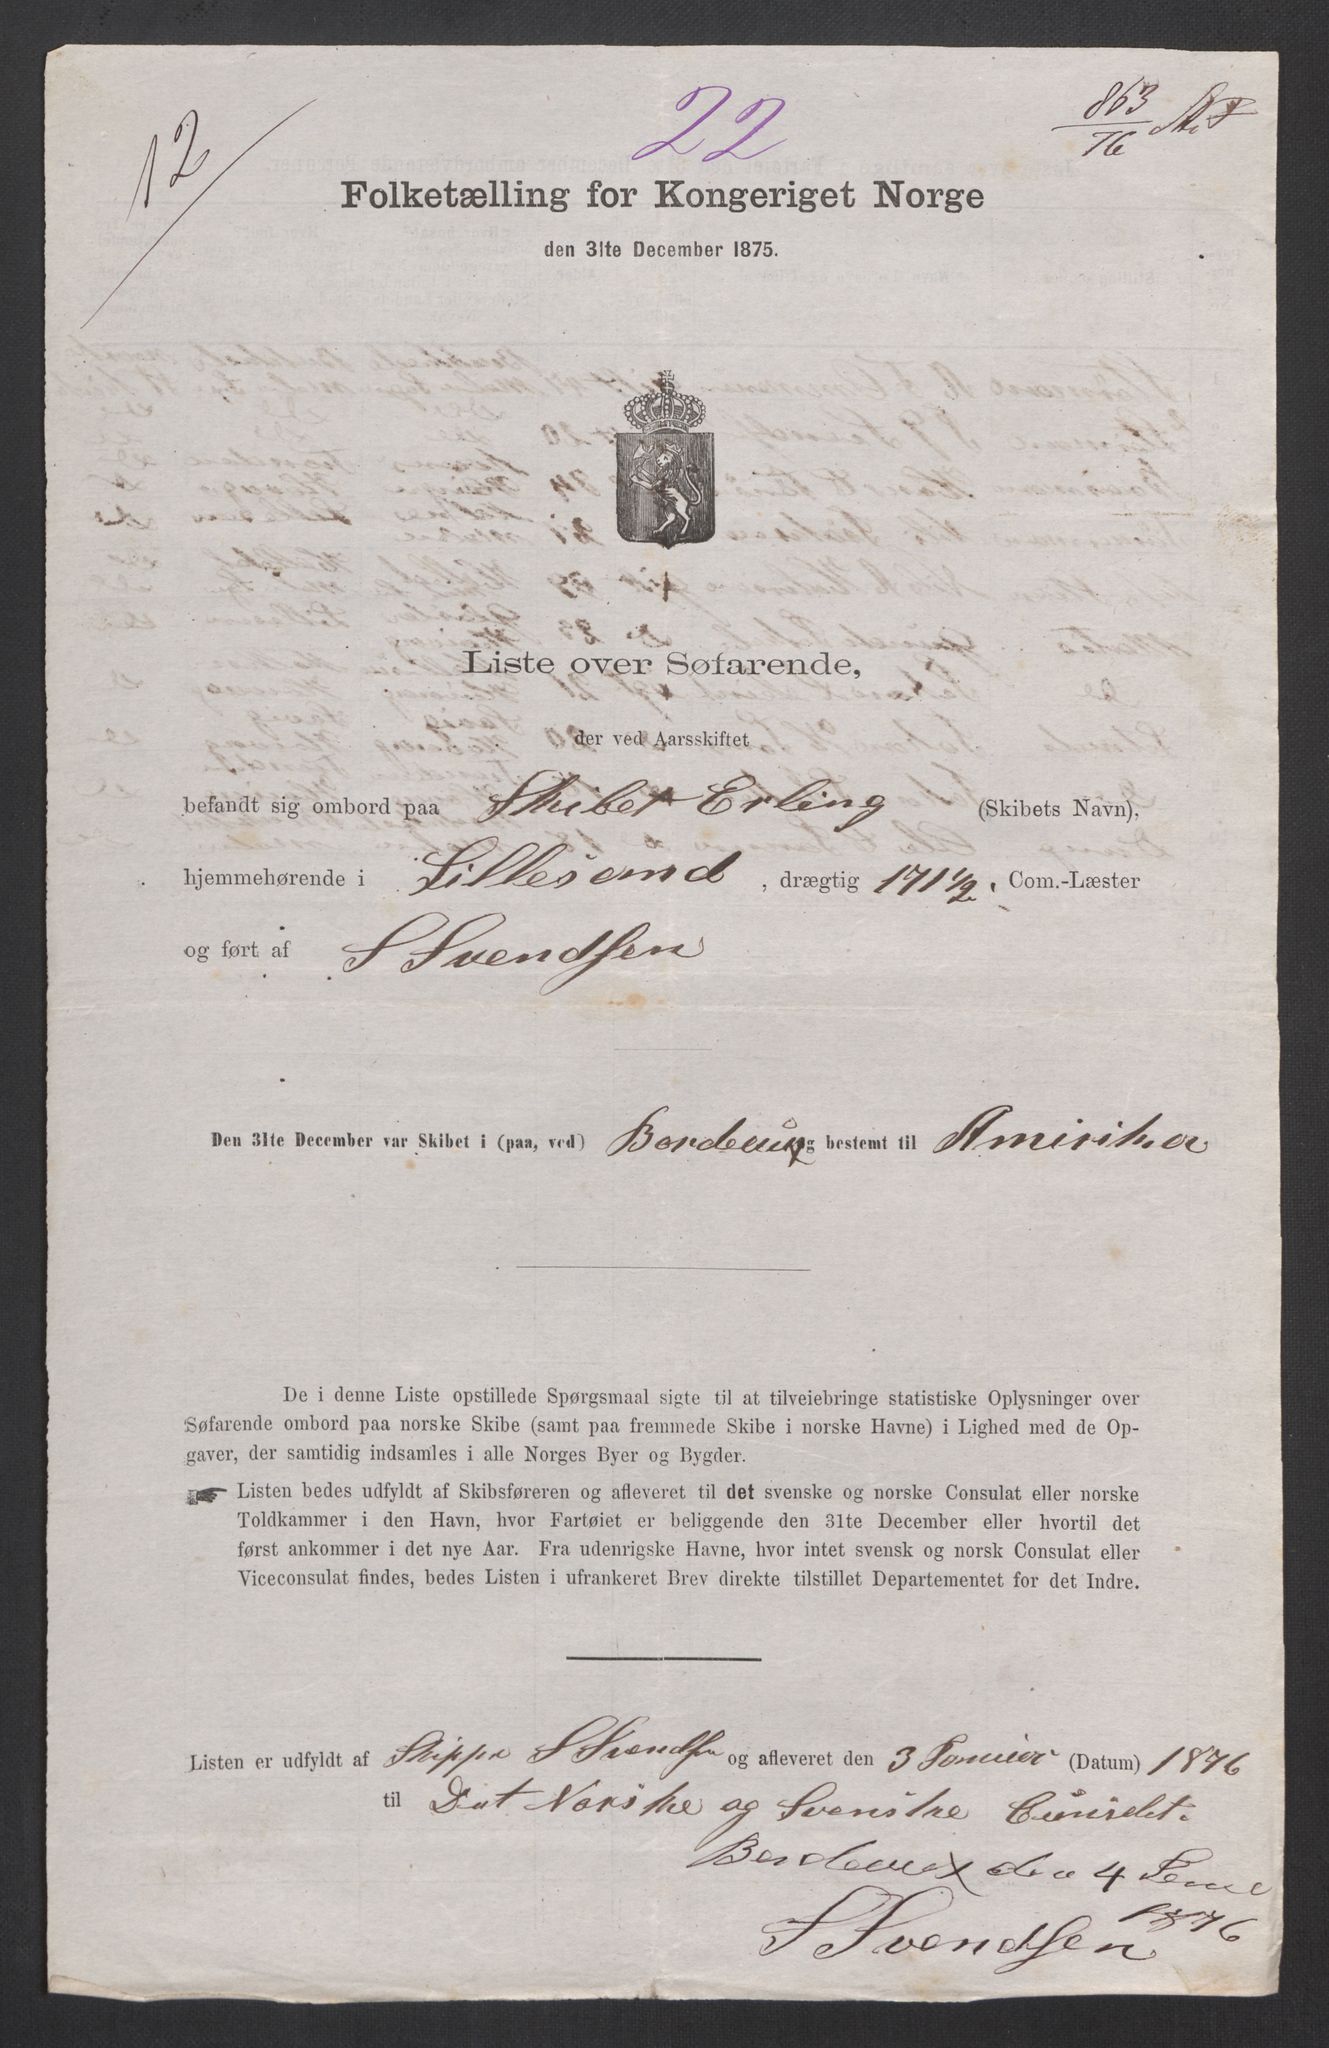 12
22
863
76
Folketælling for Kongeriget Norge
den 31te December 1875.
Liste over Søfarende,
der ved Aarsskiftet
befandt sig ombord paa Skibet Erling (Skibets Navn),
hjemmehørende i Lillesand, drægtig 171 1/2. Com.-Læster
og ført af S Svendsen
Den 31te December var Skibet i (paa, ved) Bordeaux og bestemt til Amirika
De i denne Liste opstillede Spørgsmaal sigte til at tilveiebringe statistiske Oplysninger over
Søfarende ombord paa norske Skibe (samt paa fremmede Skibe i norske Havne) i Lighed med de Op-
gaver, der samtidig indsamles i alle Norges Byer og Bygder.
☛ Listen bedes udfyldt af Skibsføreren og afleveret til det svenske og norske Consulat eller norske
Toldkammer i den Havn, hvor Fartøiet er beliggende den 31te December eller hvortil det
først ankommer i det nye Aar. Fra udenrigske Havne, hvor intet svensk og norsk Consulat eller
Viceconsulat findes, bedes Listen i ufrankeret Brev direkte tilstillet Departementet for det Indre.
Listen er udfyldt af S Svendsen og afleveret den 3 (Datum) 1876
til Det Norske og Svenske
Bordeaux den 4
1876
S Svendsen